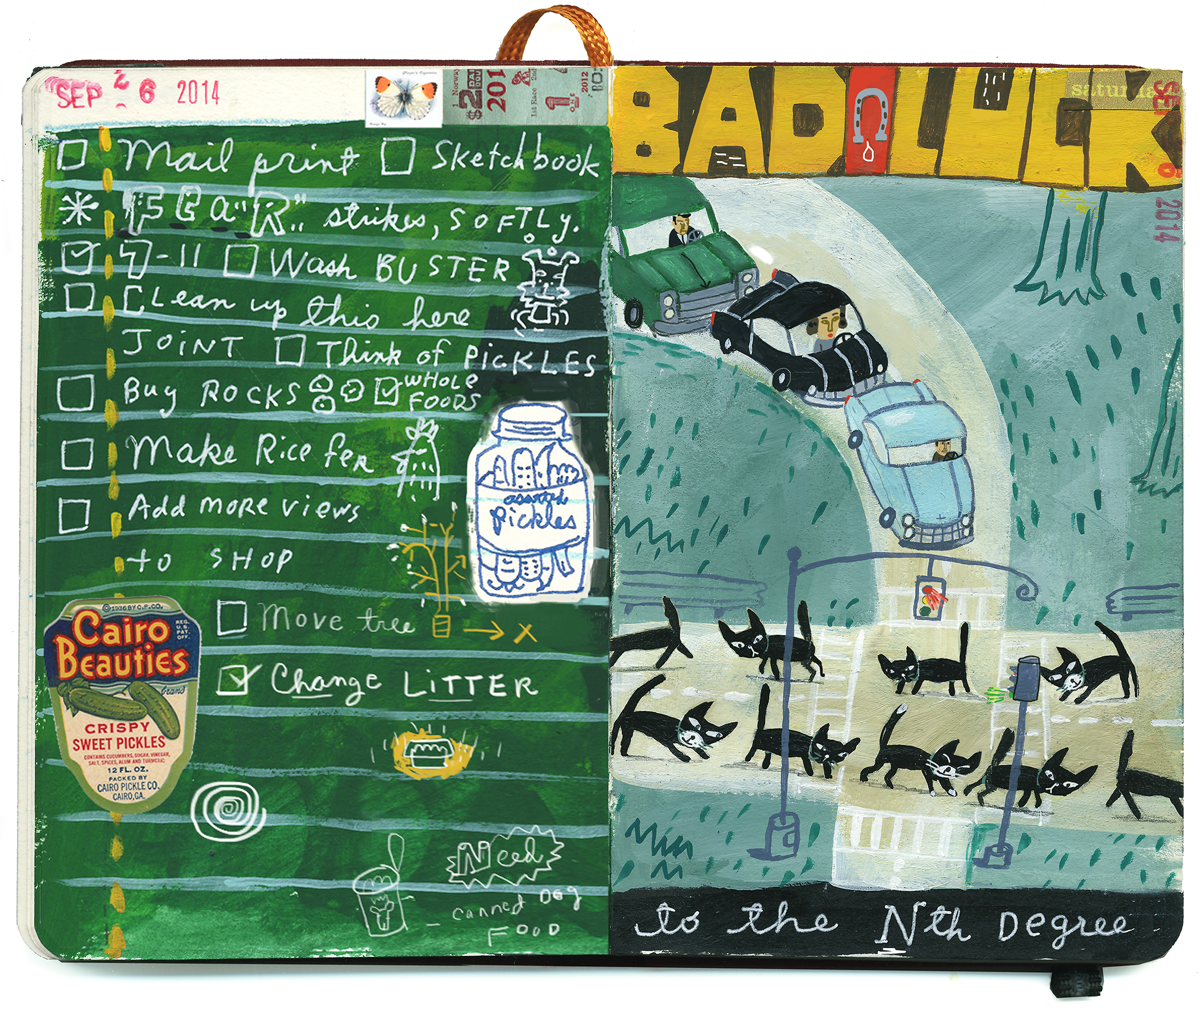 SEP 26 2014
$2
201
1st Race
1
2012
Mail print Sketchbook
"FEAR" strikes, SOFTLY.
7-11 Wash BUSTER
Clean up this here
JOINT Think of PICKLES
Buy ROCKS WHOLE FOODS
Make Rice fer
Add more views
to SHOP
assorted
Pickles
Move tree → x
Change LITTER
©1936 BY C.P.CO.
Cairo
Beauties
REG. U.S. PAT. OFF.
brand
CRISPY
SWEET PICKLES
CONTAINS CUCUMBERS, SUGAR, VINEGAR,
SALT, SPICES, ALUM AND TURMERIC
12 FL. OZ.
PACKED BY
CAIRO PICKLE CO.
CAIRO, GA.
Need
canned DOG
FOOD
BAD LUCK
saturday
SEP
6
2014
to the Nth Degree